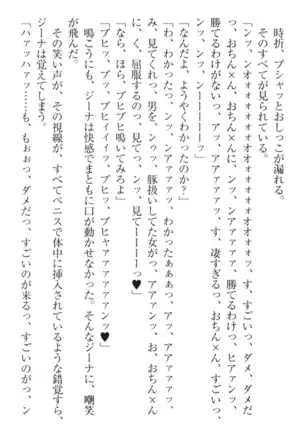 時折、プシャッとおしっこが漏れる。
そのすべてが見られている。
「ンッ、ンオォォォオオォォォォォォォォォッ、す、すごいっ、ダメ、ダメだ
っ、おちん×ん、おちん×んに、ンッ、ンアァァァァ、勝てるわけっ、ヒアァンッ、
勝てるわけがないっ、アッ、アアァァァっ、す、凄すぎるっ、おちん×ん、すごい、
ンッ、ンッ、ンーーーーーッ」
「なんだよ、ようやくわかったのか？」
「わ、わかったっ、ンッ、ンアァァァァッ、わかったぁぁぁっ、アッ、アアァァァッ、
み、見てくれっ、男を、ンゥッ、豚扱いしてた女がっ、アアァンッ、お、おちん×ん
に、く、屈服するのっ、見てっ、ンッ、見てーーーーっ♥」
「なら、ほら、ブヒブヒ鳴いてみろよ」
「ブヒッ、ブッ、ブヒィィィッ、ブヒっ、ブヒャアァァァァンッ♥」
鳴こうにも、ジーナは快感でまともに口が動かせなかった。そんなジーナに、嘲笑
が飛んだ。
その笑い声が、その視線が、すべてペニスで体中に挿入されているような錯覚すら、
ジーナは覚えてしまう。
「ハァッハァッ……も、もぉぉっ、ダメだっ、すごいのが来るっ、すごいのがっ、ン